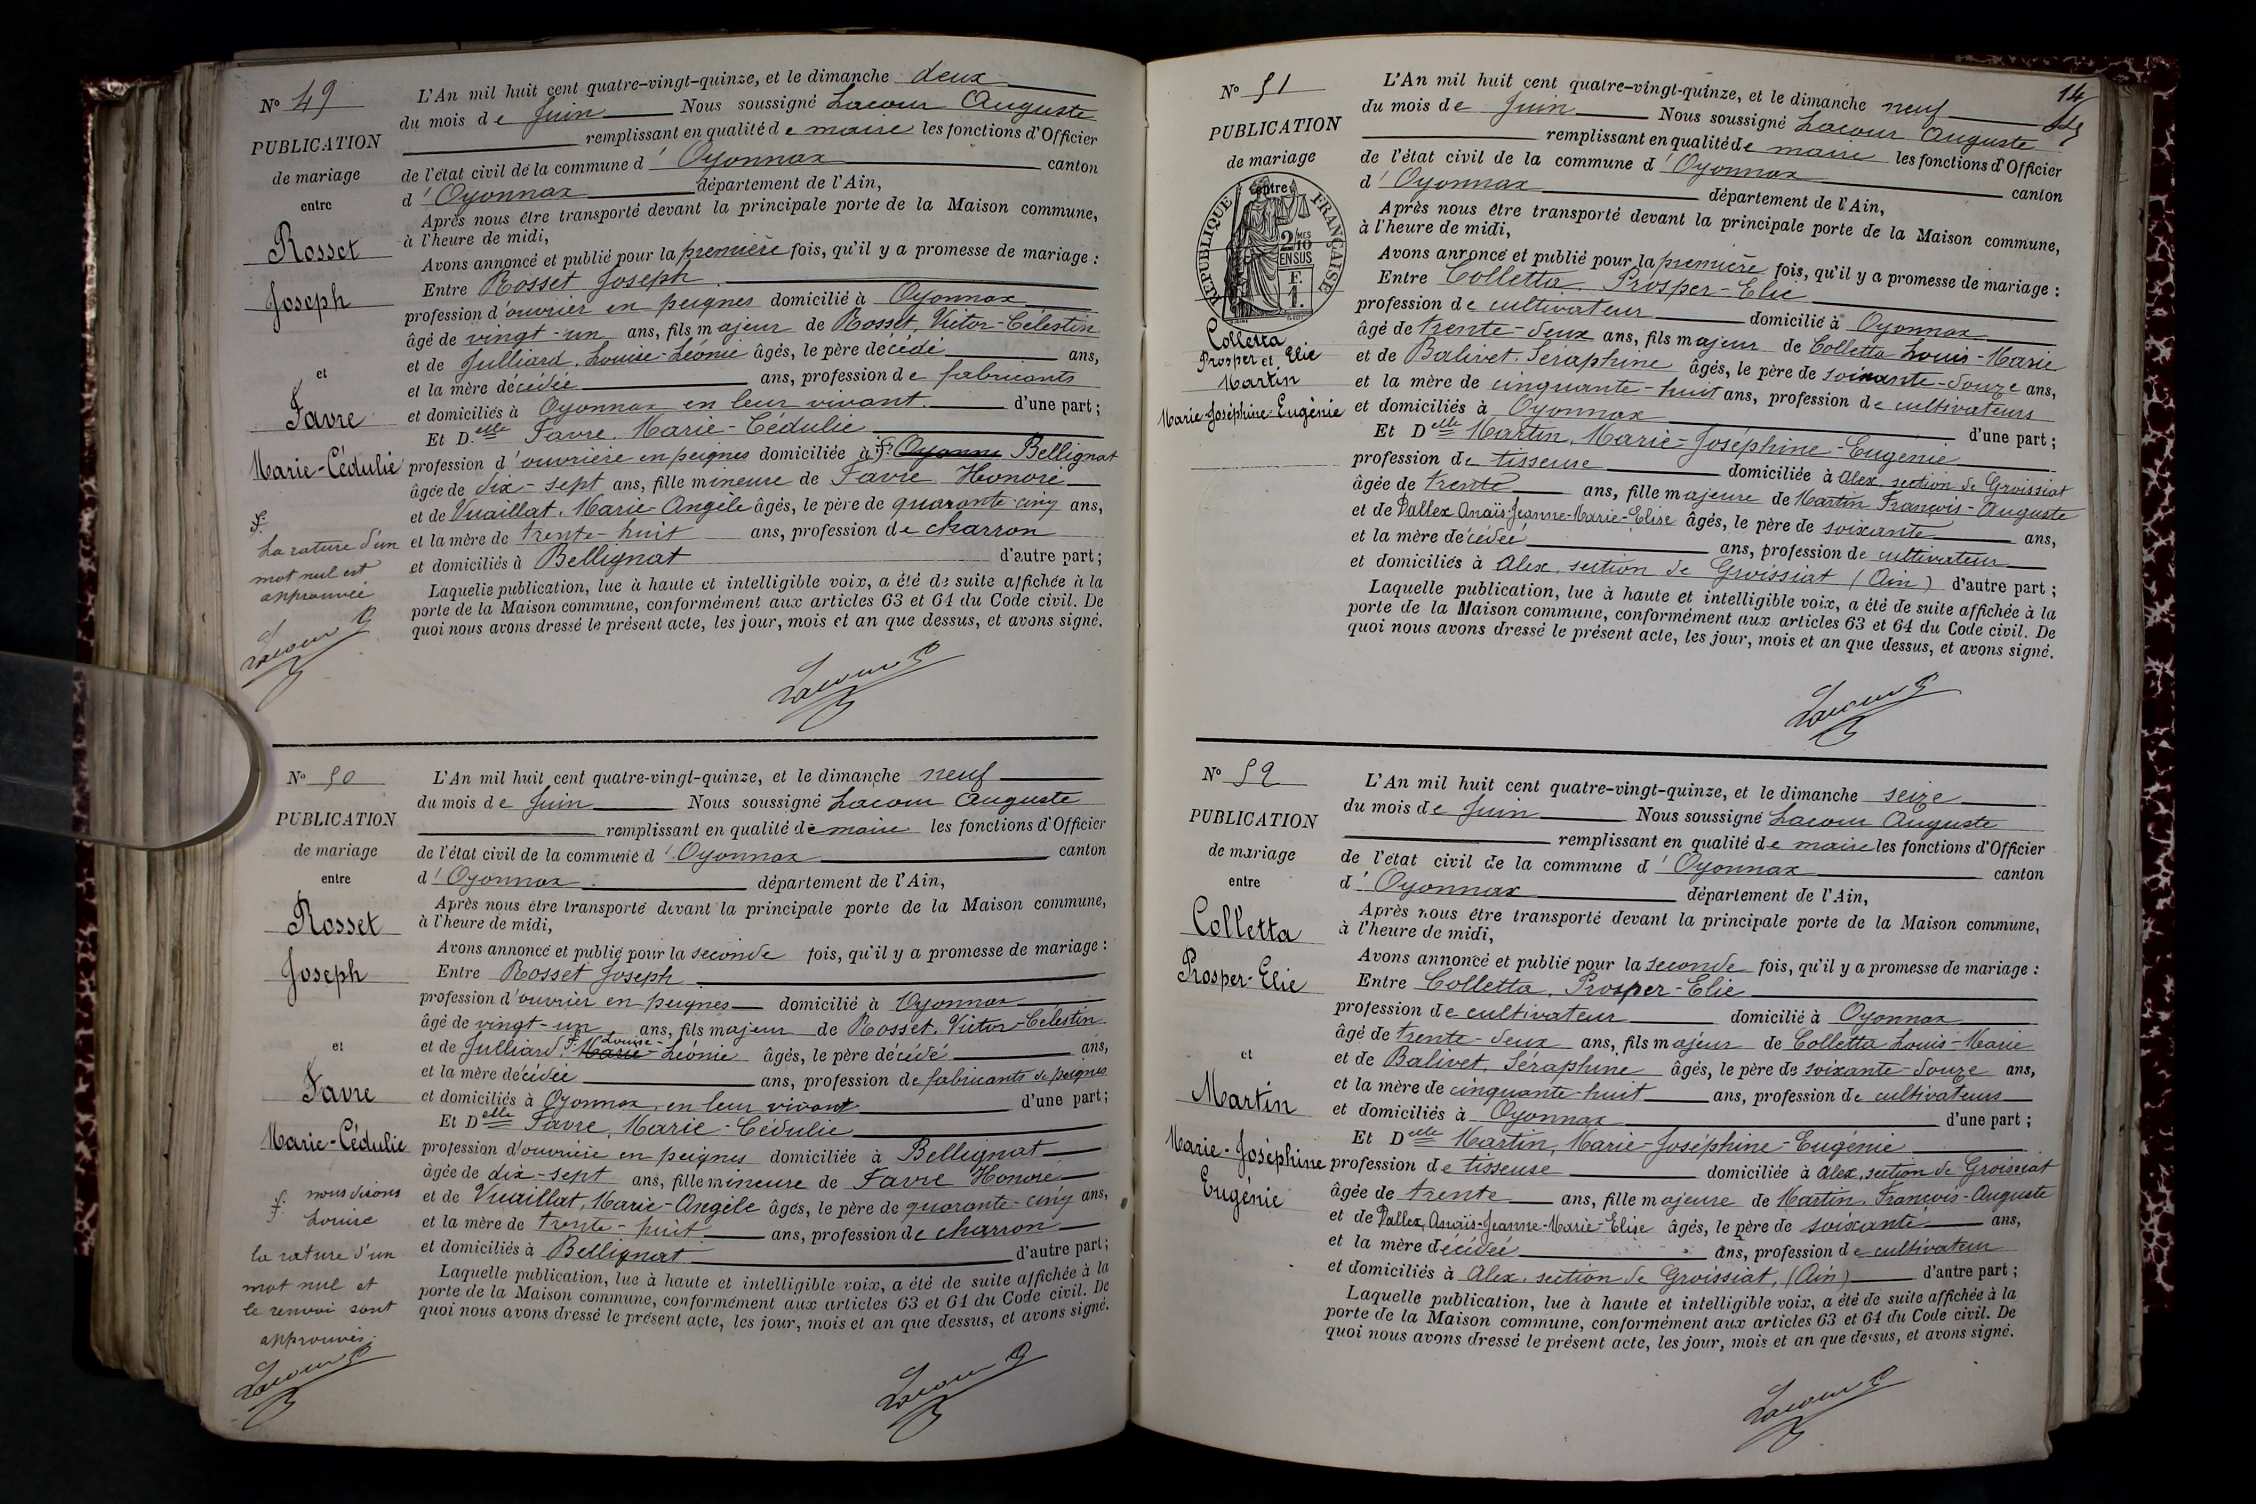 N° 49
PUBLICATION
de mariage
entre
Rosset
Joseph
et
Favre
Marie-Cédulie
La rature d'un
mot nul est
approuvée
Lacour
L'An mil huit cent quatre-vingt-quinze, et le dimanche deux
du mois de Juin Nous soussigné Lacour Auguste
remplissant en qualité de maire les fonctions d'Officier
de l'état civil de la commune d'Oyonnax canton
d'Oyonnax département de l'Ain,
Après nous être transporté devant la principale porte de la Maison commune,
à l'heure de midi,
Avons annoncé et publié pour la première fois, qu'il y a promesse de mariage :
Entre Rosset Joseph
profession d'ouvrier en peignes domicilié à Oyonnax
âgé de vingt-un ans, fils majeur de Rosset, Victor-Célestin
et de Julliard, Louise-Léonie âgés, le père décédé ans,
et la mère décédée ans, profession de fabricants
et domiciliés à Oyonnax en leur vivant d'une part ;
Et Delle Favre, Marie-Cédulie
profession d'ouvrière en peignes domiciliée à Oyonna Bellignat
âgée de dix-sept ans, fille mineure de Favre Honoré
et de Vuaillat, Marie-Angèle âgés, le père de quarante-cinq ans,
et la mère de trente-huit ans, profession de charron
et domiciliés à Bellignat d'autre part ;
Laquelle publication, lue à haute et intelligible voix, a été de suite affichée à la
porte de la Maison commune, conformément aux articles 63 et 64 du Code civil. De
quoi nous avons dressé le présent acte, les jour, mois et an que dessus, et avons signé.
Lacour
N° 50
PUBLICATION
de mariage
entre
Rosset
Joseph
et
Favre
Marie-Cédulie
nous disons
Louise
la rature d'un
mot nul et
le renvoi sont
approuvés.
Lacour
L'An mil huit cent quatre-vingt-quinze, et le dimanche neuf
du mois de Juin Nous soussigné Lacour Auguste
remplissant en qualité de maire les fonctions d'Officier
de l'état civil de la commune d'Oyonnax canton
d'Oyonnax département de l'Ain,
Après nous être transporté devant la principale porte de la Maison commune,
à l'heure de midi,
Avons annoncé et publié pour la seconde fois, qu'il y a promesse de mariage :
Entre Rosset Joseph
profession d'ouvrier en peignes domicilié à Oyonnax
âgé de vingt-un ans, fils majeur de Rosset, Victor-Célestin
et de Julliard, Marie Louise-Léonie âgés, le père décédé ans,
et la mère décédée ans, profession de fabricants de peignes
et domiciliés à Oyonnax en leur vivant d'une part ;
Et Delle Favre, Marie-Cédulie
profession d'ouvrière en peignes domiciliée à Bellignat
âgée de dix-sept ans, fille mineure de Favre Honoré
et de Vuaillat, Marie-Angèle âgés, le père de quarante-cinq ans,
et la mère de trente-huit ans, profession de charron
et domiciliés à Bellignat d'autre part ;
Laquelle publication, lue à haute et intelligible voix, a été de suite affichée à la
porte de la Maison commune, conformément aux articles 63 et 64 du Code civil. De
quoi nous avons dressé le présent acte, les jour, mois et an que dessus, et avons signé.
Lacour
14
N° 51
PUBLICATION
de mariage
entre
REPUBLIQUE FRANÇAISE
2/10 MES
EN SUS
F.
1.
Colletta
Prosper et Elie
Martin
Marie-Joséphine-Eugénie
L'An mil huit cent quatre-vingt-quinze, et le dimanche neuf
du mois de Juin Nous soussigné Lacour Auguste
remplissant en qualité de maire les fonctions d'Officier
de l'état civil de la commune d'Oyonnax canton
d'Oyonnax département de l'Ain,
Après nous être transporté devant la principale porte de la Maison commune,
à l'heure de midi,
Avons annoncé et publié pour la première fois, qu'il y a promesse de mariage :
Entre Colletta Prosper-Elie
profession de cultivateur domicilié à Oyonnax
âgé de trente-deux ans, fils majeur de Colletta Louis-Marie
et de Balivet, Séraphine âgés, le père de soixante-douze ans,
et la mère de cinquante-huit ans, profession de cultivateurs
et domiciliés à Oyonnax d'une part ;
Et Delle Martin, Marie-Joséphine-Eugénie
profession de tisseuse domiciliée à Alex, section de Groissiat
âgée de trente ans, fille majeure de Martin François-Auguste
et de Pallex Anaïs-Jeanne-Marie-Elise âgés, le père de soixante ans,
et la mère décédée ans, profession de cultivateur
et domiciliés à Alex, section de Groissiat (Ain) d'autre part ;
Laquelle publication, lue à haute et intelligible voix, a été de suite affichée à la
porte de la Maison commune, conformément aux articles 63 et 64 du Code civil. De
quoi nous avons dressé le présent acte, les jour, mois et an que dessus, et avons signé.
Lacour
N° 52
PUBLICATION
de mariage
entre
Colletta
Prosper-Elie
et
Martin
Marie-Joséphine
Eugénie
L'An mil huit cent quatre-vingt-quinze, et le dimanche seize
du mois de Juin Nous soussigné Lacour Auguste
remplissant en qualité de maire les fonctions d'Officier
de l'état civil de la commune d'Oyonnax canton
d'Oyonnax département de l'Ain,
Après nous être transporté devant la principale porte de la Maison commune,
à l'heure de midi,
Avons annoncé et publié pour la seconde fois, qu'il y a promesse de mariage :
Entre Colletta, Prosper-Elie
profession de cultivateur domicilié à Oyonnax
âgé de trente-deux ans, fils majeur de Colletta Louis-Marie
et de Balivet, Séraphine âgés, le père de soixante-douze ans,
et la mère de cinquante-huit ans, profession de cultivateurs
et domiciliés à Oyonnax d'une part ;
Et Delle Martin, Marie-Joséphine-Eugénie
profession de tisseuse domiciliée à Alex, section de Groissiat
âgée de trente ans, fille majeure de Martin, François-Auguste
et de Pallex, Anaïs-Jeanne-Marie-Elise âgés, le père de soixante ans,
et la mère décédée ans, profession de cultivateur
et domiciliés à Alex, section de Groissiat, (Ain) d'autre part ;
Laquelle publication, lue à haute et intelligible voix, a été de suite affichée à la
porte de la Maison commune, conformément aux articles 63 et 64 du Code civil. De
quoi nous avons dressé le présent acte, les jour, mois et an que dessus, et avons signé.
Lacour